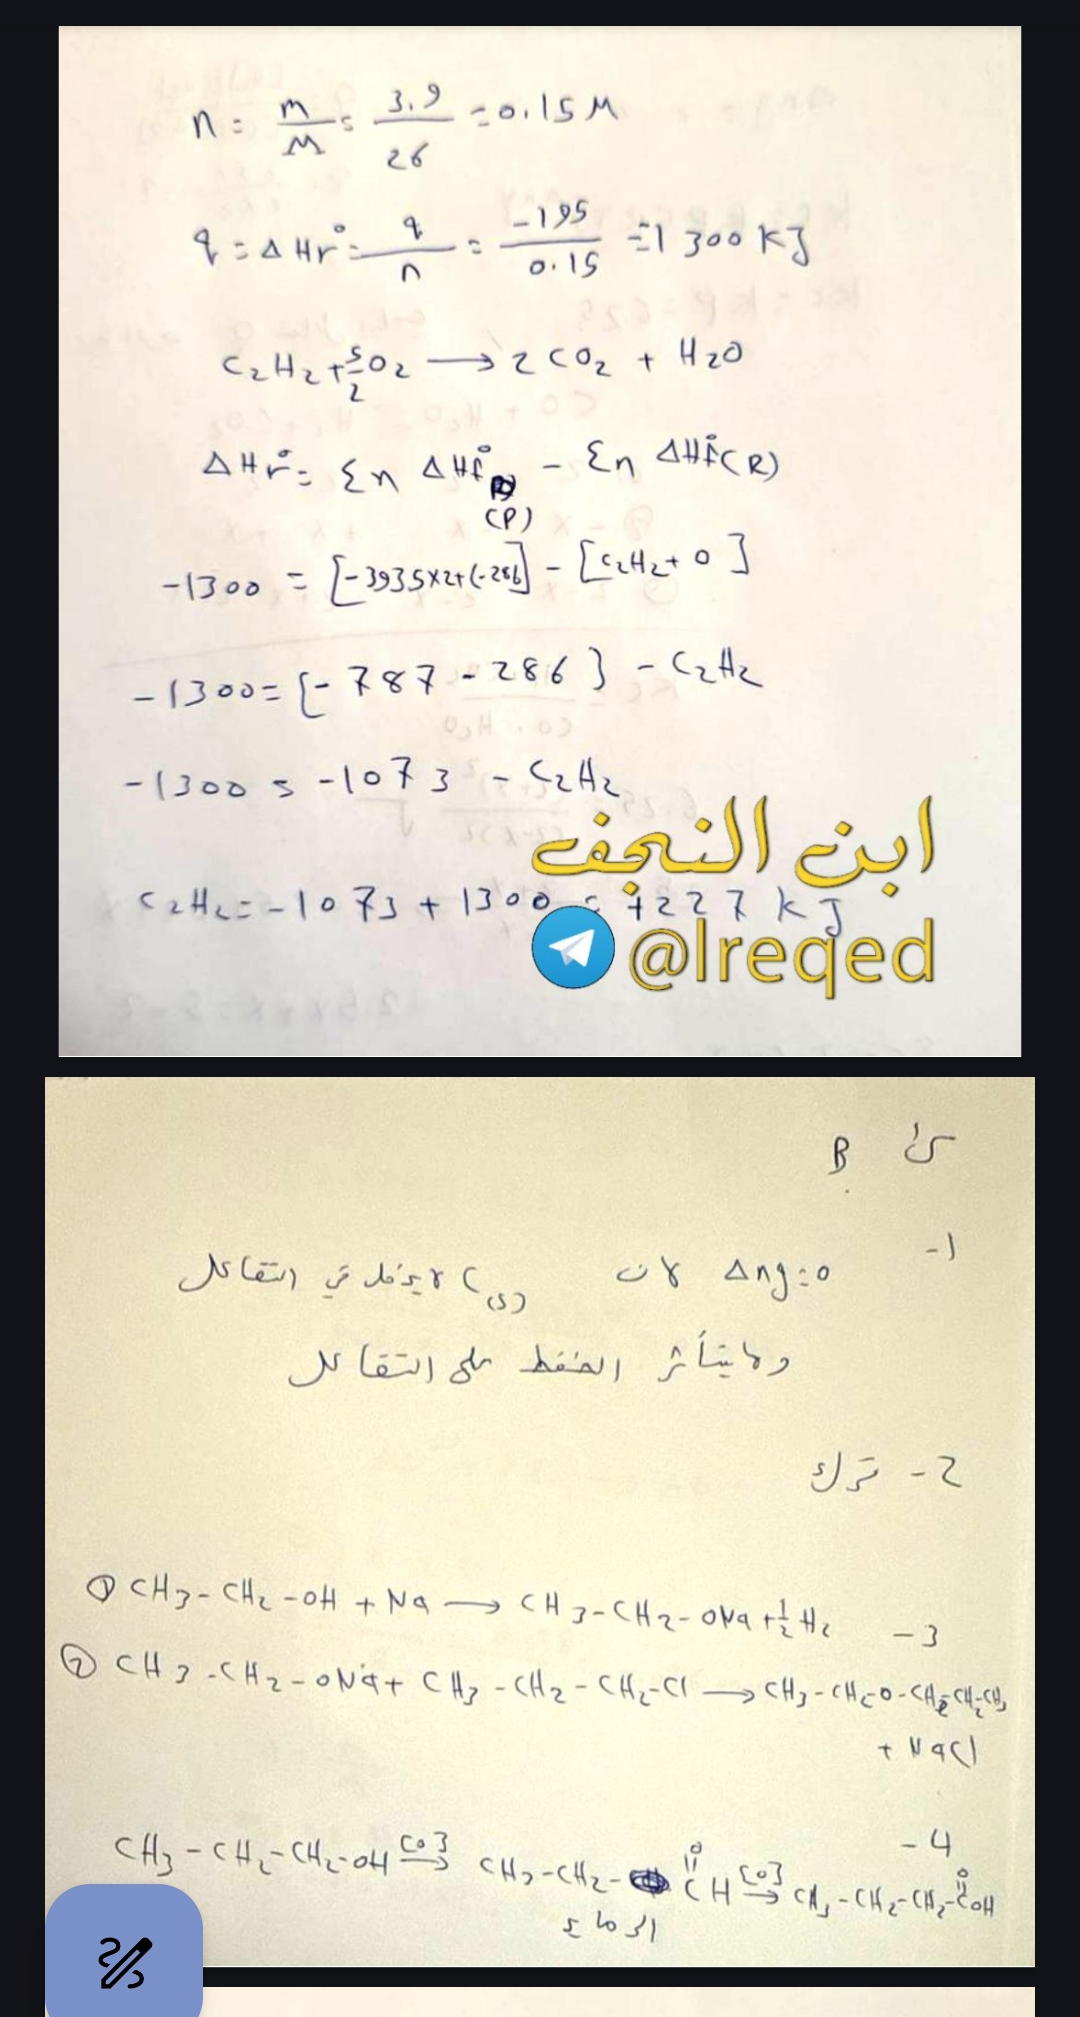 n = m/M = 3.9/26 = 0.15 M
q = ΔHr° = q/n = -195/0.15 = -1300 KJ
C2H2 + 5/2 O2 → 2 CO2 + H2O
ΔHr° = Σn ΔHf° (P) - Σn ΔHf° (R)
-1300 = [-393.5×2+(-286)] - [C2H2 + 0]
-1300 = [-787 - 286] - C2H2
-1300 = -1073 - C2H2
C2H2 = -1073 + 1300 = +227 kJ
ابن النجف
@Ireqed
B
1-
Δng=0 لان C(s) لا يدخل في التفاعل
ولا يتأثر الضغط على التفاعل
2- ترك
3-
① CH3-CH2-OH + Na → CH3-CH2-ONa + 1/2 H2
② CH3-CH2-ONa + CH3-CH2-CH2-Cl → CH3-CH2-O-CH2-CH2-CH3
+ NaCl
4-
CH3-CH2-CH2-OH [O]→ CH3-CH2-CH=O [O]→ CH3-CH2-CH2-COOH